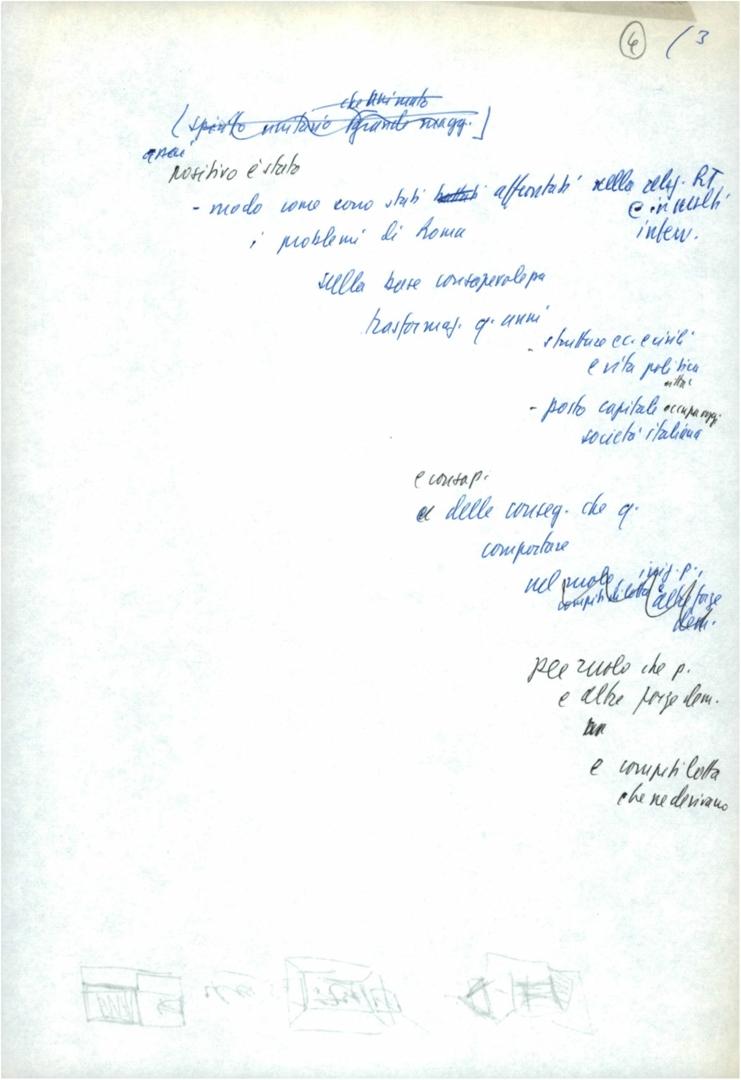 4 / 3
che animato
(spirito unitario grande magg.]
anzi
positivo è stato
- modo come sono stati trattati affrontati nella relaz. RT
e in molti
i problemi di Roma interv.
sulla base consapevolezza
trasformaz. q. anni
- strutture ec. e civili
e vita politica
città
- posto capitale occupa oggi
società italiana
e consap.
delle conseg. che q.
comportare
nel ruolo
compiti di lotta altre forze
dem.
per ruolo che p.
e altre forze dem.
e compiti lotta
che ne derivano